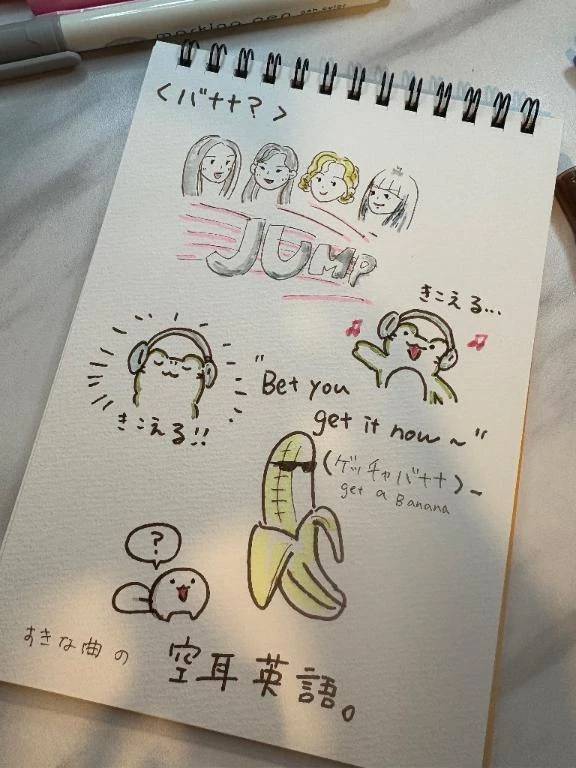 marking pen
<バナナ?>
JUMP
きこえる...
きこえる!!
"Bet you
get it now~"
(ゲッチャバナナ)~
get a Banana
?
すきな曲の
空耳英語。